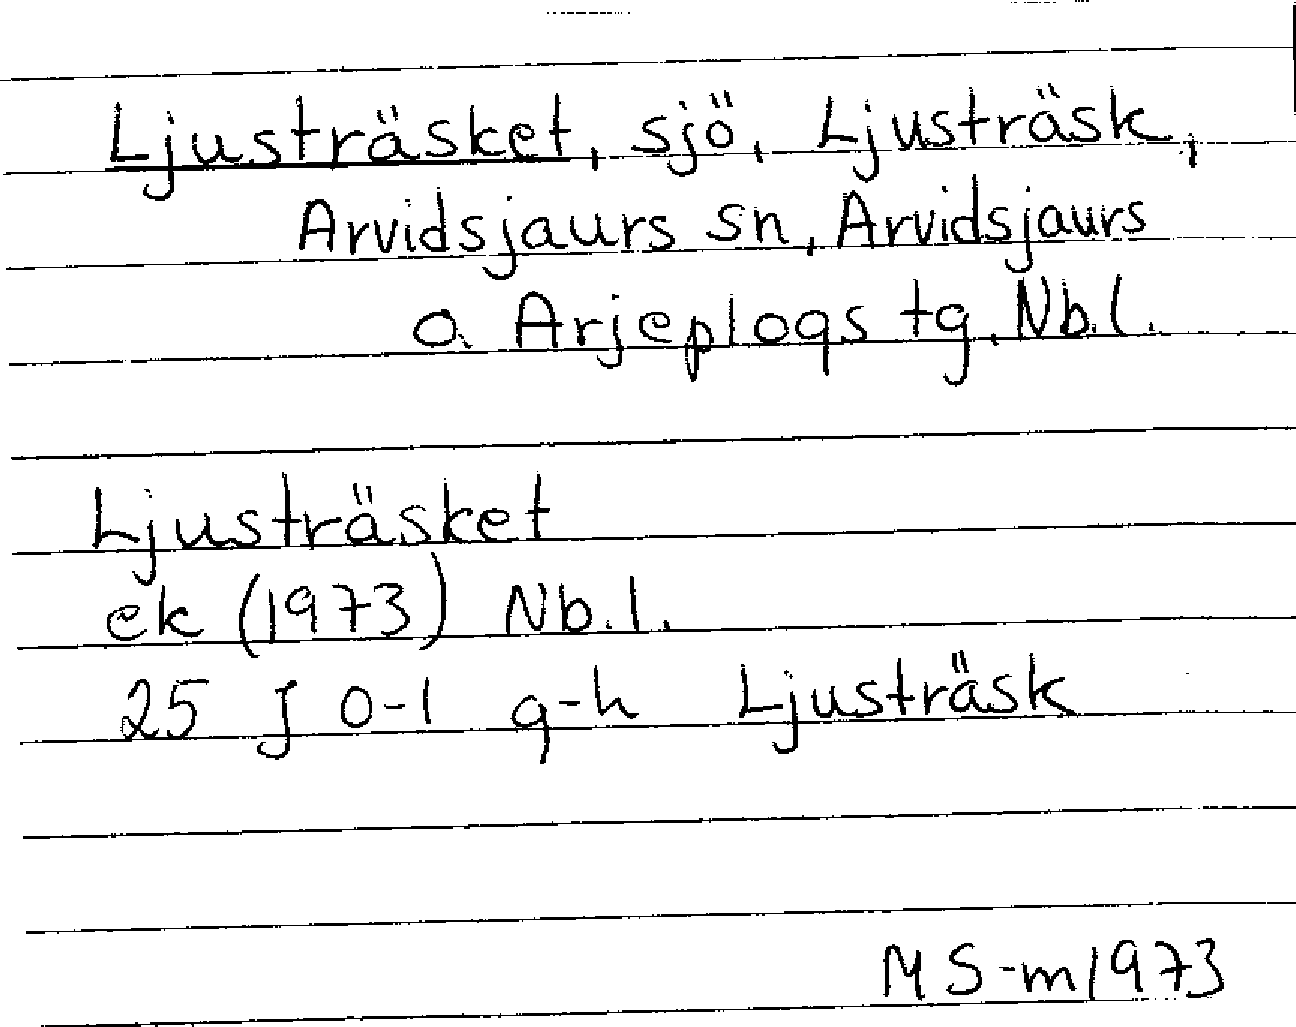 Ljusträsket, sjö, Ljusträsk,
Arvidsjaurs sn, Arvidsjaurs
o. Arjeplogs tg, Nb.l.
Ljusträsket
ek (1973) Nb.l.
25 J 0-1 g-h Ljusträsk
MS-m1973